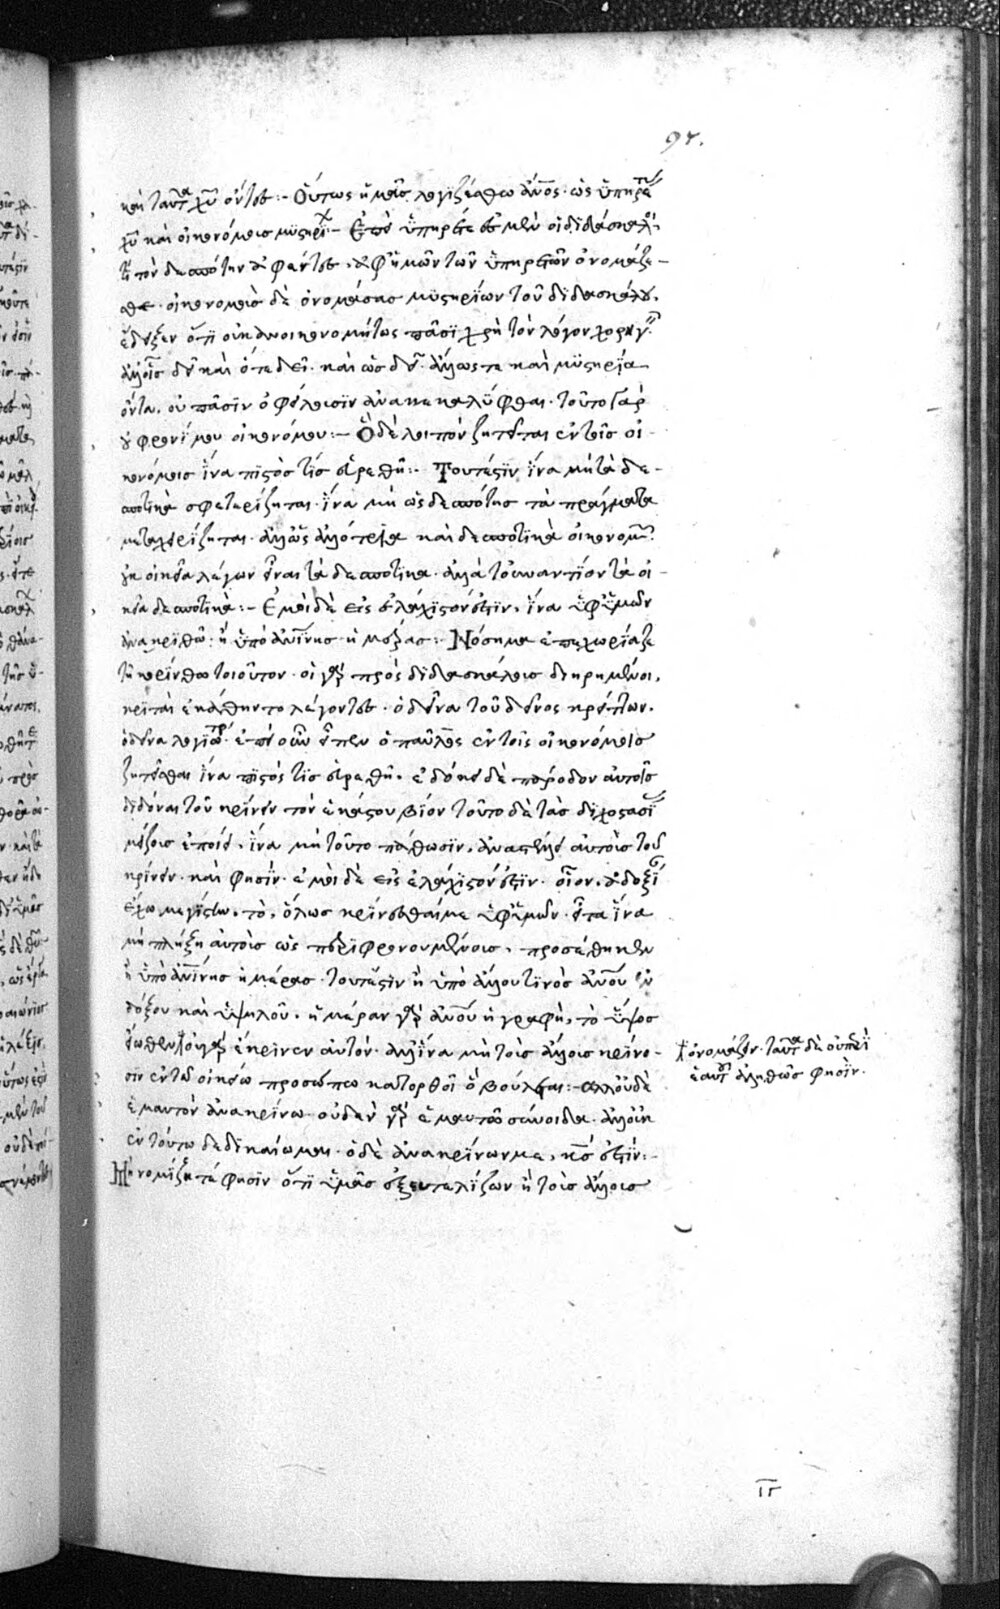 97.
καὶ ταῦτα χῦ ὄντος:- Οὕτως ἡμᾶς λογιζέσθω ἄνος· ὡς ὑπηρέτας
χῦ καὶ οἰκονόμους μυστηρίων:- Ἐπεὶ ὑπηρέται ἐσμὲν οἱ διδάσκαλοι,
τί τὸν δεσπότην ἀφέντες, ἀφ' ἡμῶν τῶν ὑπηρετῶν ὀνομάζε-
σθε· οἰκονόμους δὲ ὀνομάσας μυστηρίων τοὺς διδασκάλους,
ἔδειξεν ὅτι οὐκ ἀνοικονομήτως πᾶσι χρὴ τὸν λόγον χορηγεῖν·
ἀλλ' οἷς δεῖ καὶ ὅτε δεῖ· καὶ ὡς δεῖ· ἄλλως τε καὶ μυστήρια
ὄντα, οὐ πᾶσιν ὀφείλουσιν ἀνακεκαλύφθαι· τοῦτο γὰρ
οὐ φρονίμου οἰκονόμου:- Ὃ δὲ λοιπὸν ζητεῖται ἐν τοῖς οἰ-
κονόμοις ἵνα πιστός τις εὑρεθῇ:- Τουτέστιν ἵνα μὴ τὰ δε-
σποτικὰ σφετερίζηται· ἵνα μὴ ὡς δεσπότης τὰ πράγματα
μεταχειρίζηται· ἀλλ' ὡς ἀλλότρια καὶ δεσποτικὰ οἰκονομῇ·
οὐκ οἰκεῖα λέγων εἶναι τὰ δεσποτικα· ἀλλὰ τοὐναντίον τὰ οἰ-
κεῖα δεσποτικὰ:- Ἐμοὶ δὲ εἰς ἐλάχιστόν ἐστιν, ἵνα ὑφ' ὑμῶν
ἀνακριθῶ· ἢ ὑπὸ ἀνίνης ἡμέρας:- Νόσημα ἐπεχωρίαζε
τῇ κορίνθῳ τοιοῦτον· οἱ γὰρ πρὸς διδασκάλους διῃρημένοι,
κριταὶ ἐκάθηντο λέγοντες· ὁ δεῖνα τοῦ δεῖνος κρείττων·
ὁ δεῖνα λογιώτερος· ἐπεὶ οὖν εἶπεν ὁ παῦλος ἐν τοῖς οἰκονόμοις
ζητεῖσθαι ἵνα πιστός τις εὑρεθῇ· ἐδόκει δὲ πάροδον αὐτοῖς
διδόναι τοῦ κρίνειν τὸν ἑκάστου βίον τοῦτο δὲ τὰς διχοστασίας
μείζους ἐποίει, ἵνα μὴ τοῦτο πάθωσιν, ἀναστέλλει αὐτοὺς τοῦ
κρίνειν· καὶ φησίν· ἐμοὶ δὲ εἰς ἐλάχιστόν ἐστιν· οἷον, ἀδοξίαν
ἔχω μεγίστην, τὸ, ὅλως κρίνεσθαί με ὑφ' ὑμῶν· εἶτα ἵνα
μὴ πλήξῃ αὐτοὺς ὡς περιφρονουμένους, προσέθηκεν
ἢ ὑπὸ ἀνίνης ἡμέρας· τουτέστιν ἢ ὑπὸ ἄλλου τινὸς ἀνου ἐν
δόξου καὶ ὑψηλοῦ· ἡμέραν γὰρ ἀνου ἡ γραφὴ, τὸ ὕψος
εἴωθεν οὐ γὰρ ἔκρινεν αὐτόν· ἀλλ' ἵνα μὴ τοὺς ἄλλους κρίνω-
σιν ἐν τῷ οἰκείῳ προσώπῳ κατορθοῖ ὃ βούλεται:- ἀλλ' οὐδὲ
ἐμαυτὸν ἀνακρίνω· οὐδὲν γὰρ ἐμαυτῶ σύνοιδα· ἀλλ' οὐκ
ἐν τούτω δεδικαίωμαι· ὁ δὲ ἀνακρίνων με, κς ἐστίν:-
Μὴ νομίζετέ φησιν ὅτι ὑμᾶς ἐξευτελίζων ἢ τοὺς ἄλλους
ὀνομάζειν· ταῦτα δὲ οὐ περὶ
ἑαυτοῦ ἀληθῶς φησΐν·
ιγ